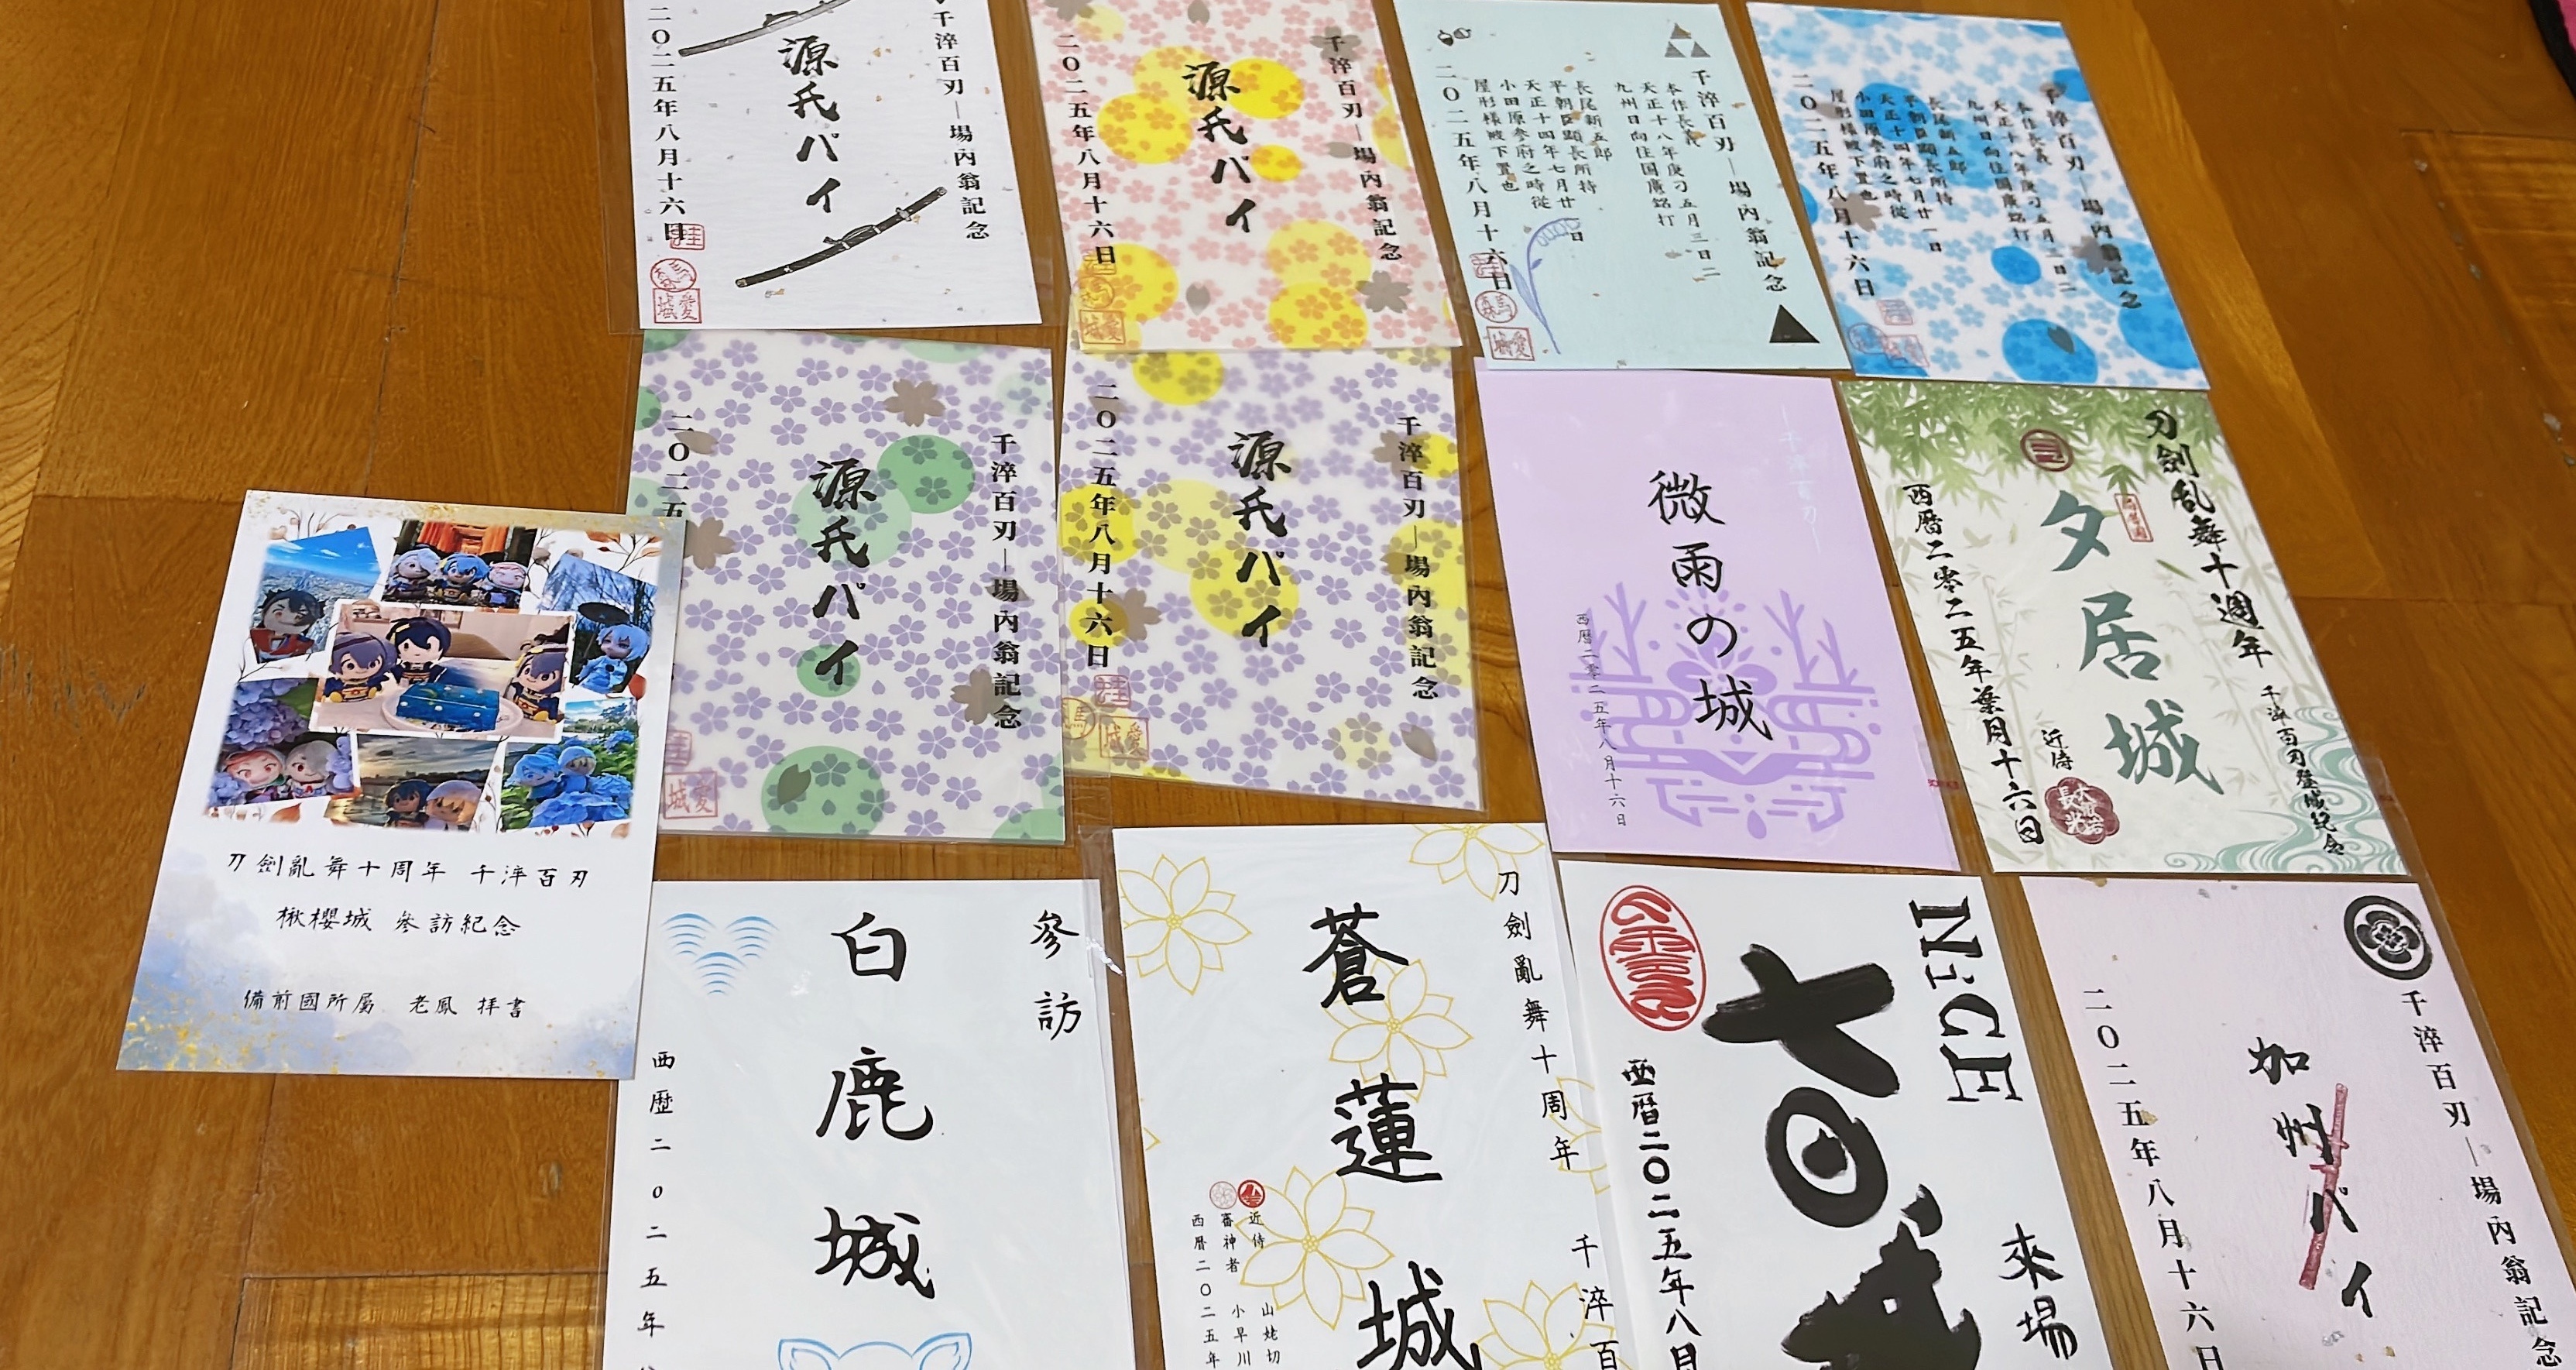 千淬百刃—場內翁記念
源氏パイ
二〇二五年八月十六日
愛城
千淬百刃—場內翁記念
源氏パイ
二〇二五年八月十六日
千淬百刃—場內翁記念
本作長義
天正十八年庚刁五月三日二
九州日向住国廣銘打
長尾新五郎
平朝臣顕長所持
天正十四年七月廿一日
小田原参府之時從
屋形様被下置也
二〇二五年八月十六日
愛城
千淬百刃—場內翁記念
本作長義
天正十八年庚刁五月三日二
九州日向住国廣銘打
長尾新五郎
平朝臣顕長所持
天正十四年七月廿一日
小田原参府之時從
屋形様被下置也
二〇二五年八月十六日
千淬百刃—場內翁記念
源氏パイ
二〇二五
愛城
千淬百刃—場內翁記念
源氏パイ
二〇二五年八月十六日
愛城
微雨の城
西暦二零二五年八月十六日
刀劍乱舞十週年
千淬百刃登城紀念
夕居城
近侍
大般若長光
西暦二零二五年葉月十六日
刀劍亂舞十周年 千淬百刃
楸櫻城 參訪紀念
備前國所屬 老鳳 拝書
參訪
白鹿城
西歷二〇二五年
刀劍亂舞十周年 千淬百
蒼蓮城
近侍 山姥切
審神者 小早川
西暦二〇二五年
NiCE
來場
西暦二〇二五年八月
千淬百刃—場內翁記念
加州パイ
二〇二五年八月十六日